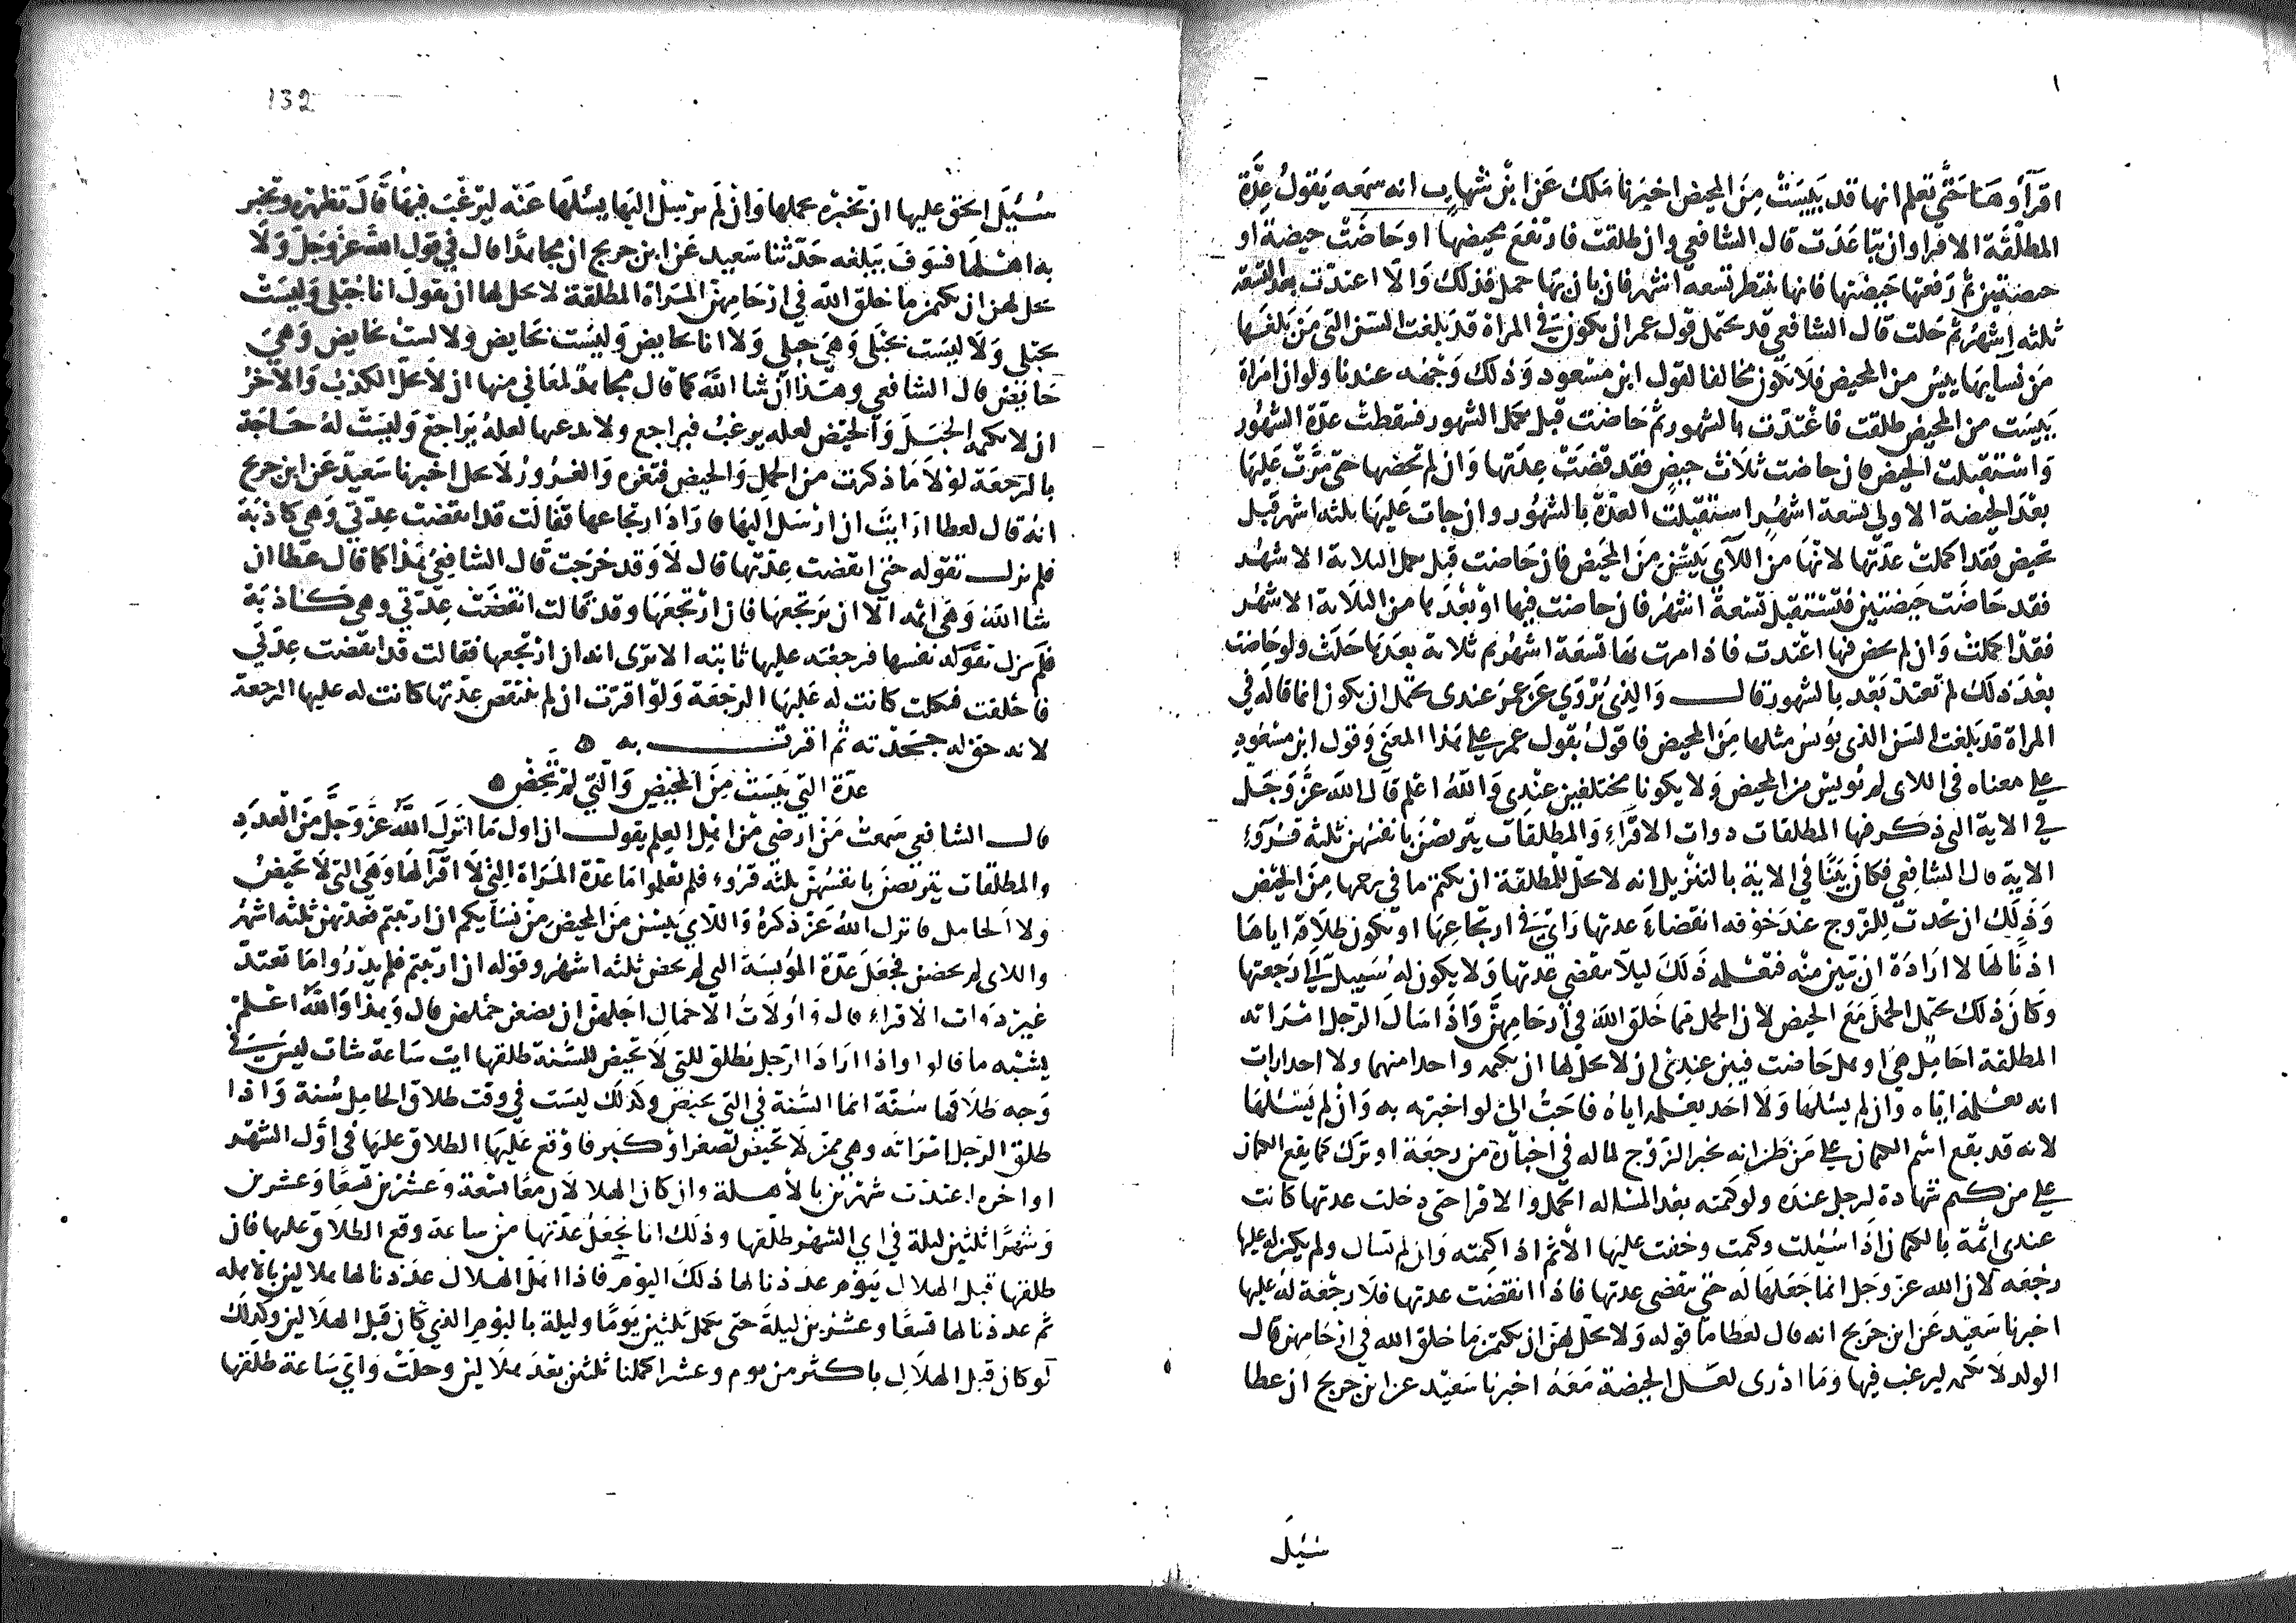 اقرآؤهَا حَتَّى تعلم انها قد يَيِسَتْ مِنَ المحيض اخبرنا مَلك عَن ابنْ شهاب انه سمعه يَقولُ عِدَّة
المطلّقَة الاقرا وان تبَاعَدَت قال الشافعي وان طلقت فارتفَعَ محيضها او حَاضَتْ حيضة او
حيضتَين ثم رَفعتها حَيضتها فانها تنتظر تسعة اشهر فان بان بهَا حمل فذلك وَالّا اعتدّت بعد التسعة
ثلثه اَشهُر ثم حَلت قال الشافعي قد يحتمل قول عمر ان يكون في المراة قد بَلغت السّن التي مَن بَلغَها
مَن نسايهَا ييئس من المحيض فلا يكون مخالفا لقول ابن مَسْعود وَذلك وَجْهه عندنا ولو ان امَراة
يَيِسَت من المحيض طلقت فاعْتدّت بالشهور ثمَّ حَاضَت قبل تكمل الشهور فسقطتْ عدّة الشهُور
وَاسْتقبلت الحيض فان حاضت ثلَاث حِيَضٍ فقد قضَتْ عِدّتها وَان لم تحضها حتى مَّرتْ عَليهَا
بعْدَ الحيْضة الاولى تسَعة اشهُر استقبلت العدّة بالشهوُر وان جات عَليهَا ثلثه اشهر قبل
تحيض فقد اكملتْ عدّتها لانهَا منَ اللآي يَئِسْنَ مِنَ المحَيض فان حَاضت قبل تكمل الثلاثة الاشهُر
فقد حَاضَت حَيضتين فتَستقبل تسْعة اشهُر فان حاضت فيها اوْ بعْدَها من الثلاثة الاشهُر
فقدْ اكملتْ وَان لم تحض فيها اعْتدت فاذا مرت بهَا تسَعَة اشهُر ثم ثلاثة بعَدهَا حَلت ولو حَاضت
بعْدَ ذلكَ لم تعتدّ بَعْد بالشهور قال وَالذِي يُرْوَي عَن عمَر عندى يحتمل ان يكون انما قاله في
المراة قد بَلغت السّن الذى يُؤيس مثلها مِنَ المحيض فاقولُ بقول عمر على هذا المعَنى وَقول ابن مَسْعُود
على معناه في اللاى لم يُويسْن من المحيض وَلا يكونا مختلفين عنْدِى وَاللهُ اعْلم قال الله عَزّ وَجَل
في الاية التى ذكر فيها المطلقات دوات الاقرَاءِ وَالمطلقات يتربصْن بانفسَهن ثلثه قرُوءِ
الاية قال الشافِعِي فكان بَيّنًا في الاية بالتنزيل انه لا يحَلّ للمطلقة ان تكتم ما في رحمها مِنَ الحيْض
وَذَلِكَ ان يحدُث للزّوج عندَ خوْفه انقضاءَ عدتها رَايٌ في ارتجَاعِهَا او تكون طلاقه اياهَا
اذنًا لهَا لا ارَادَة ان تبين منْه فتعْلمه ذَلكَ ليَلّا تنقضى عدتها وَلا يكون لهُ سَبيلٌ الى رَجعتها
وَكانَ ذلك يحتمل الحملَ مَعَ الحيض لان الحمل ممّا خَلقَ الله في اَرحَامِهنَّ وَاذَا سَال الرّجل امْرَاته
المطلقة احَامِلٌ هِيَ او هل حَاضت فبين عندِى ان لا يحَلّ لها ان تكتمه واحدا منهما ولا احدا رات
انه يعْلمهُ ايّاه وَان لم يَسْلهَا وَلَا احَد يعْلمه اياهُ فاحَبُّ الىّ لو اخبرته به وَانْ لم يَسْئلهَا
لانه قد يقع اسْم الكتمان على مَن ظن انه يخبر الزّوْج لما له في اخبَاره من رجعَة او ترك كما يقع الكتمان
على من كتم شهادة لرجل عندَه ولو كتمته بعْد المسَاله الحمل والاقرا حتى دخلت عدتها كانت
عندى اثمة بالكتمان اذَا سُئِلت وكتمت وخفت عليَها الاثم اذا كتمته وَان لم تسال ولم يكن له عليها
رجْعَه لان الله عزّ وجَل انما جَعَلهَا لَه حَتىّ تنقضى عدتها فاذا انقضَت عدتها فلا رجْعَة له عليها
اخبرنا سَعيْد عَن ابن جرَيج انه قال لعَطا ما قوله وَلا يحَلّ لهَن ان يكتمْن مَا خلق الله في ارْحَامِهن قال
الولد لَا تكتمه ليرغبَ فِيها وَمَا ادْرى لعَلّ الحيضة مَعَه اخبرنا سَعيْد عن ابن جريج ان عطا
سُئِلَ
132
سُئِلَ احق عليها ان تخبرَه بحملها وَانْ لَم يُرسِلْ اليهَا يسْئلهَا عَنْه ليَرغْبَ فيهَا قَالَ تظهره وتخبر
به اهْلهَا فسَوفَ يَبلغه حَدّثنا سَعيد عَن ابن جريج ان مجاهدًا قال في قول الله عزّ وَجلّ وَلَا
يحَل لهن ان يكتمن ما خلق الله في ارْحَامِهنّ المَراة المطلقة لا يحل لها ان تقول انا حُبْلى وَليسَتْ
بحبْلى وَلَا ليسَت بحبْلى وَهيَ حبلى وَلا انا حايض وَليسَت بحَايض ولا لستُ بحايض وَهيَ
حَايض قال الشافعي وهذا ان شا اللهُ كما قال مجاهد لمعَاني منها ان لَا يحَلّ الكذبُ وَالآخرُ
ان لا تكتمه الحبَلَ وَالحيْض لعله يرغبُ فيراجع ولا تدعيها لعلهُ يُرَاجعُ وَليسَتْ لهُ حَاجَة
بالرجعَة لولَا مَا ذكرت من الحمل وَالحيض فتغره وَالغرُورُ لَا يحل اخبرنا سَعيدٌ عَن ابن جريج
انهُ قال لعطا ارَايتَ ان ارْسَلَ اليهَا فارَادَ ارتجاعها فقالَت قد انقضت عِدّتي وَهي كاذبَة
فلم تزل تقوله حَتى انقضت عِدّتهَا قال لَا وَقد خرَجت قال الشافِعيُ هذا كما قال عطا ان
شا الله وَهىَ اثمه الّا ان يَرتجعَهَا فان ارْتجعَهَا وقدْ قالت انقضَتْ عِدّتي وهى كَاذبَة
فلمَ تزل تقوله نفسها فرجعته عليها ثابته الا ترى انه ان ارْتجعها فقالت قد انقضت عِدّتي
فاُحْلفت فنكلت كانت له عَليهَا الرجَعَة وَلوْ اقرّت ان لم تنقض عدّتها كانت له عليها الرجعة
لانه حَق له جحَدَته ثم اقرت به ه
عدّة التى يَيِسَتْ مِنَ المحيضِ وَالّتي لمْ تَحِضْ ه
قال الشافعي سَمعتُ مَنْ ارضى مْن اهْل العلم يقول ان اول مَا انزَلَ اللهُ عزَّ وَجَلّ منَ العدَدِ
والمطلقات يتربصْن بانفسُهنّ ثلثه قرُوءِ فلم يعْلموا مَا عدّة المَراة التىْ لَا اقرَآ لهَا وَهىَ التى لَا تحيضُ
ولا الحامل فانزل اللهُ عَزّ ذكرهُ وَاللآيَ يَئِسْن منَ المحيْض منْ نسَايكم ان ارتبتم فعدتهن ثلثه اشهُر
واللاى لم يحضن فجعَلَ عدّة المُؤيسَة التى لم تحض ثلثه اشهُر وقوله ان ارتبتم فلم يدْرُوا مَا تعتدّ
غير دَوات الاقراءِ قال وَاوُلَاتُ الاحْمالِ اجَلهنّ ان يضعن حْملهن قال وَهذا وَاللهُ اعْلم
يشبْه ما قالوا واذا ارَادَ الرّجل يطلق للتى لَا تحيض للسُّنة طلقها ايت سَاعة شات ليسَ في
وَجه طَلاقها سُنّة انما السُّنة في التى تحيض وكذلك ليسَت في وقت طلاق الحَامِل سُنة وَاذا
طلق الرّجل امْرَاته وهي ممّن لَا تحيض لصغر اوْ كبَر فاوْقع عَليهَا الطلاق عليهَا في اوّل الشهْر
او اخره اعتدّت شهْرَيْن بالأهلة وان كان الهلالان مَعًا تسْعة وَعشْرين تسَعًا وَعشرين
وَشهْرًا ثلثين ليلة في اي الشهْر طلّقها وذلك انا نجَعَلُ عدّتها منْ ساعة وقع الطلاق عليها فان
طلقها قبل الهلال بيَوْم عدَدْنا لها ذلكَ اليوْم فاذا اهَلّ الهلال عدَدْنا لها هلالين بالاهله
ثم عددنا لها تسعًا وعشرين ليلة حتى نكمل ثلثين يَوْمًا وليلة باليوْمِ الذي كان قبل الهلالين وكذلك
لو كان قبل الهلَال باكثر من يوم وعشرا اكملنا ثلثين بعْدَ هلالين وحلَتْ وَاي سَاعة طلّقها